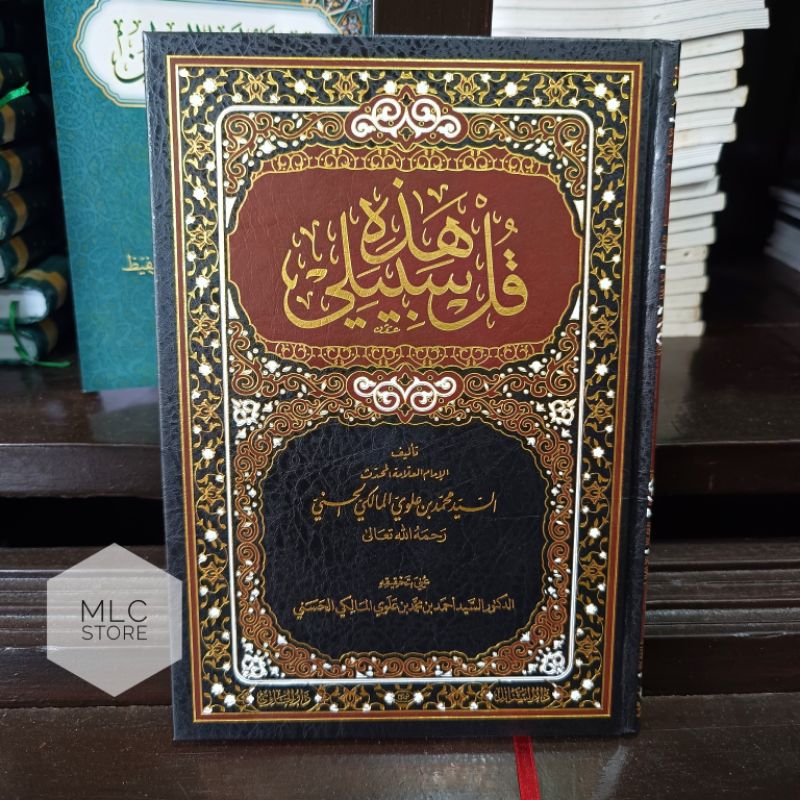 قُلْ هَذِهِ سَبِيلِي
تأليف
الإمام العلامة المحدث
السيد محمد بن علوي المالكي الحسني
رحمه الله تعالى
عُني بتحقيقه
الدكتور السيد أحمد بن محمد بن علوي المالكي الحسني
MLC
STORE